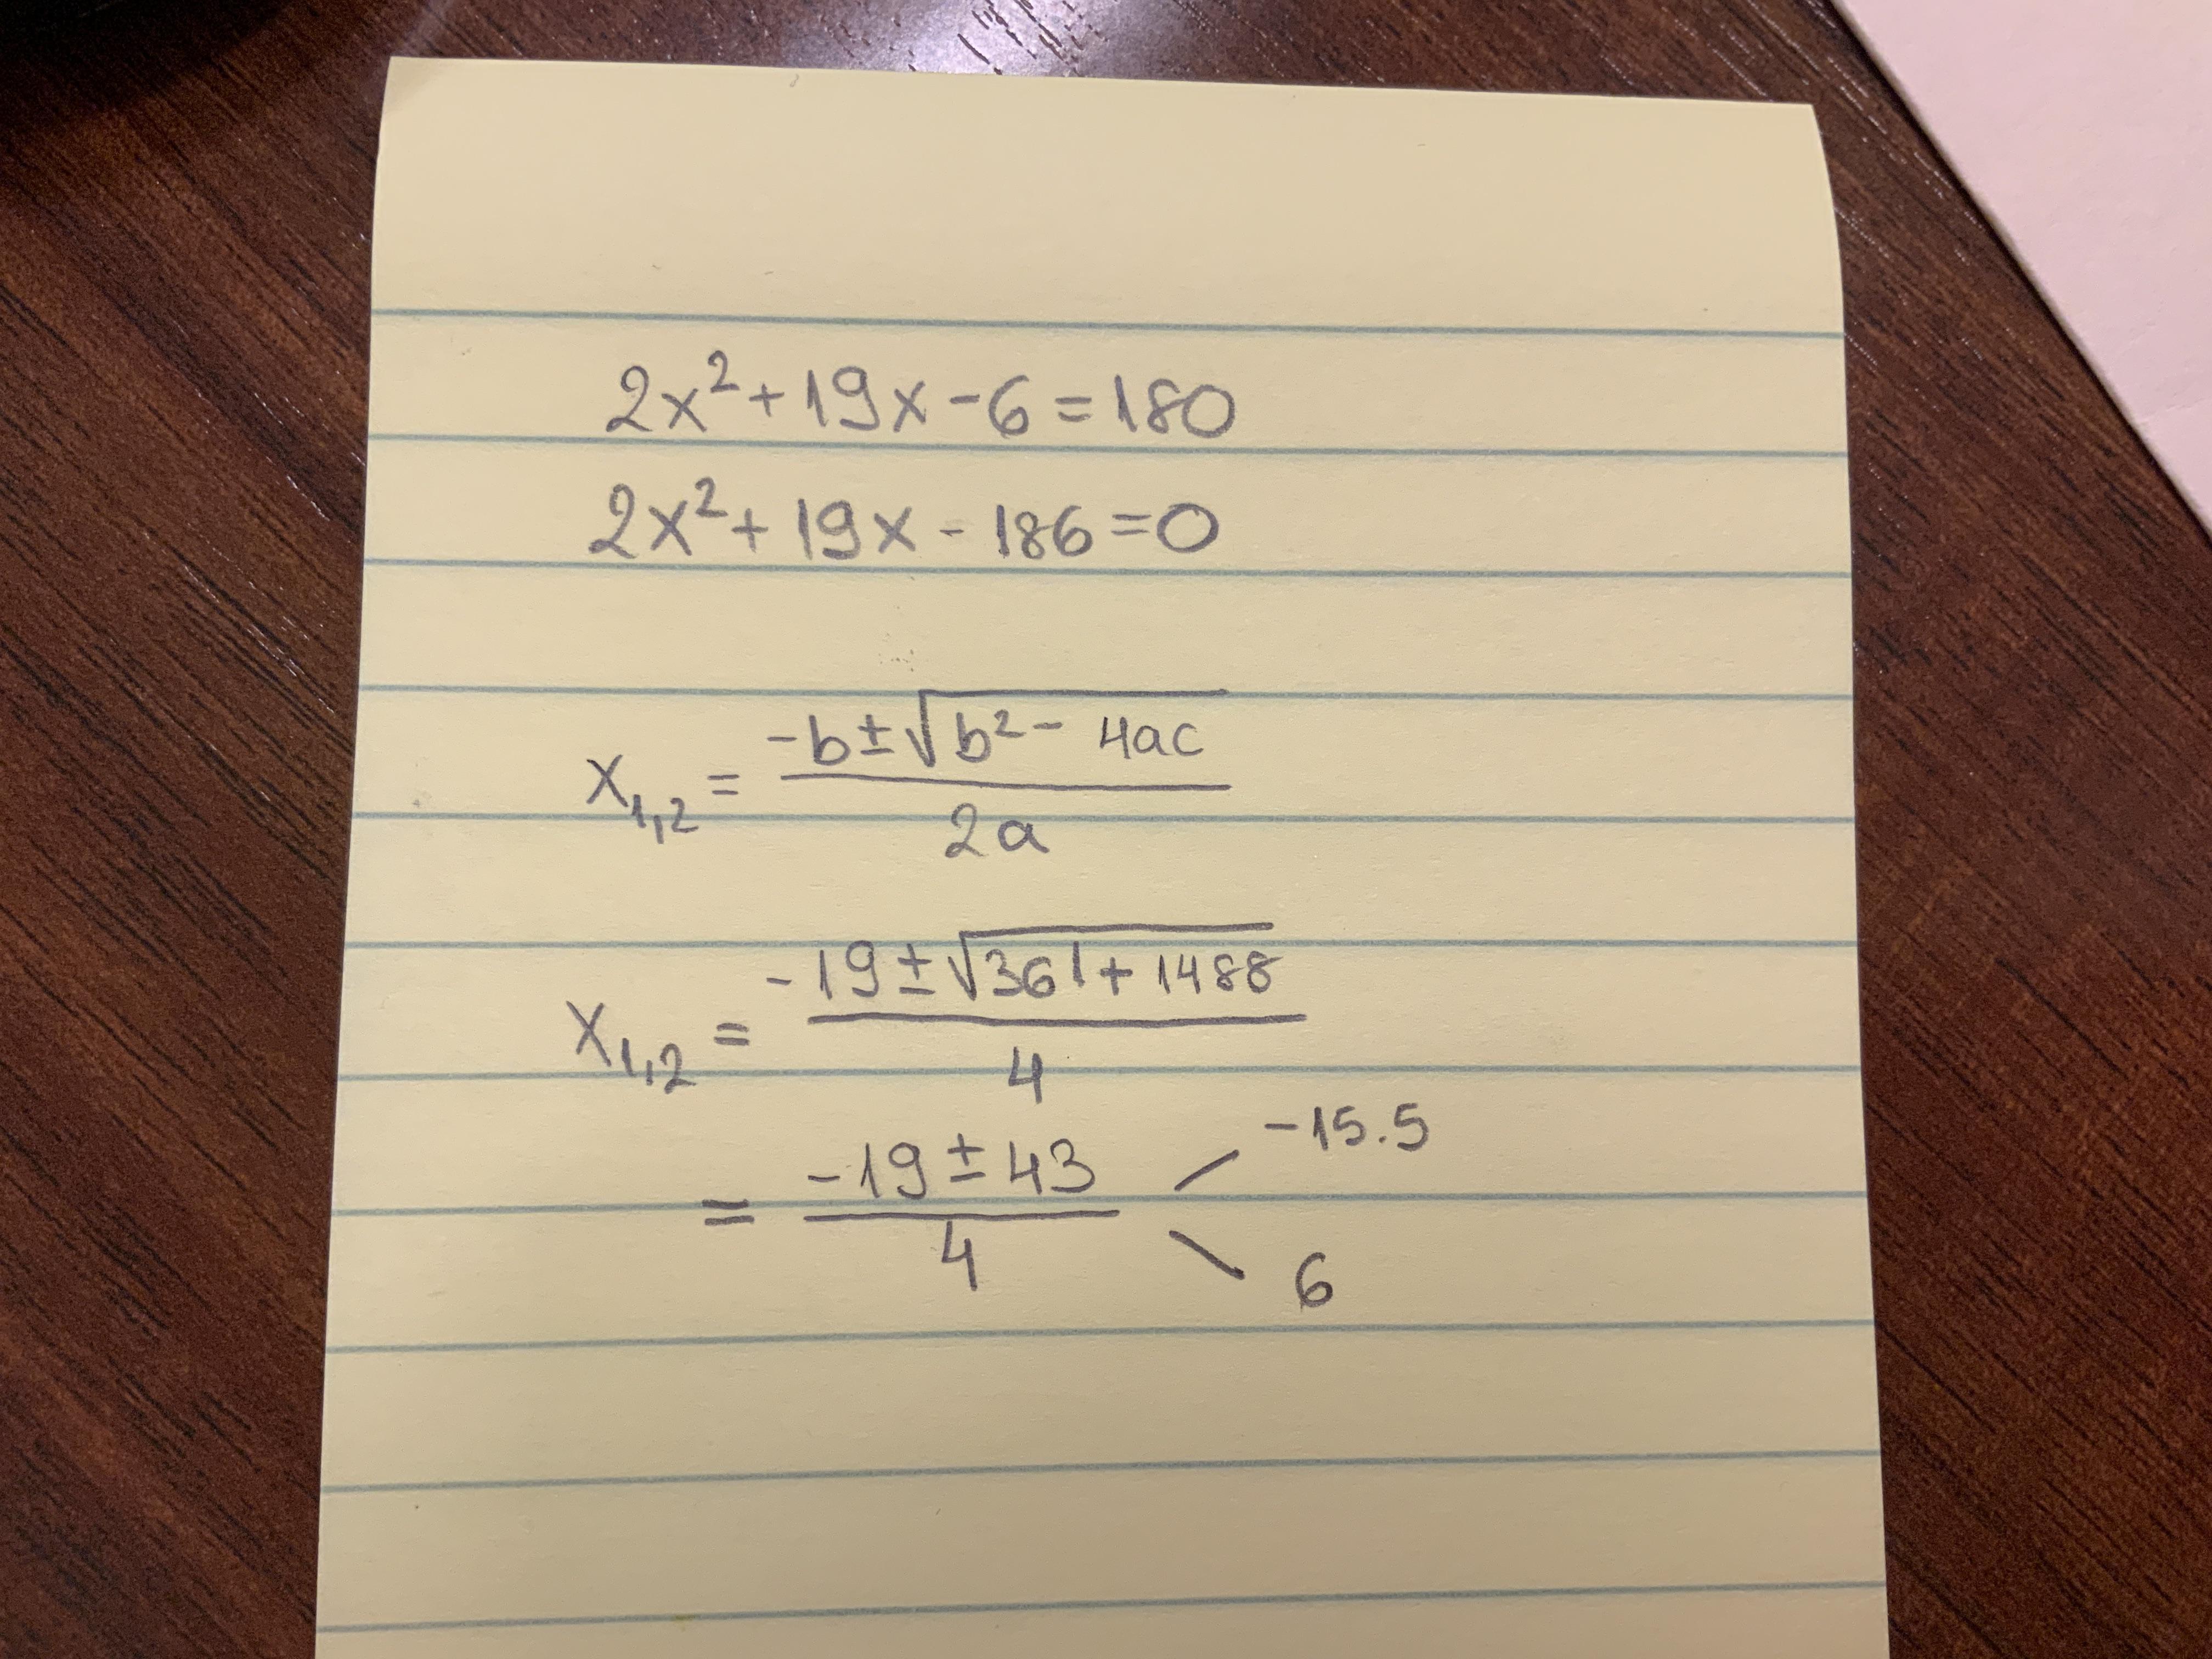 2x² + 19x - 6 = 180
2x² + 19x - 186 = 0
x₁,₂ = (-b ± √(b² - 4ac)) / 2a
x₁,₂ = (-19 ± √(361 + 1488)) / 4
= (-19 ± 43) / 4
-15.5
6